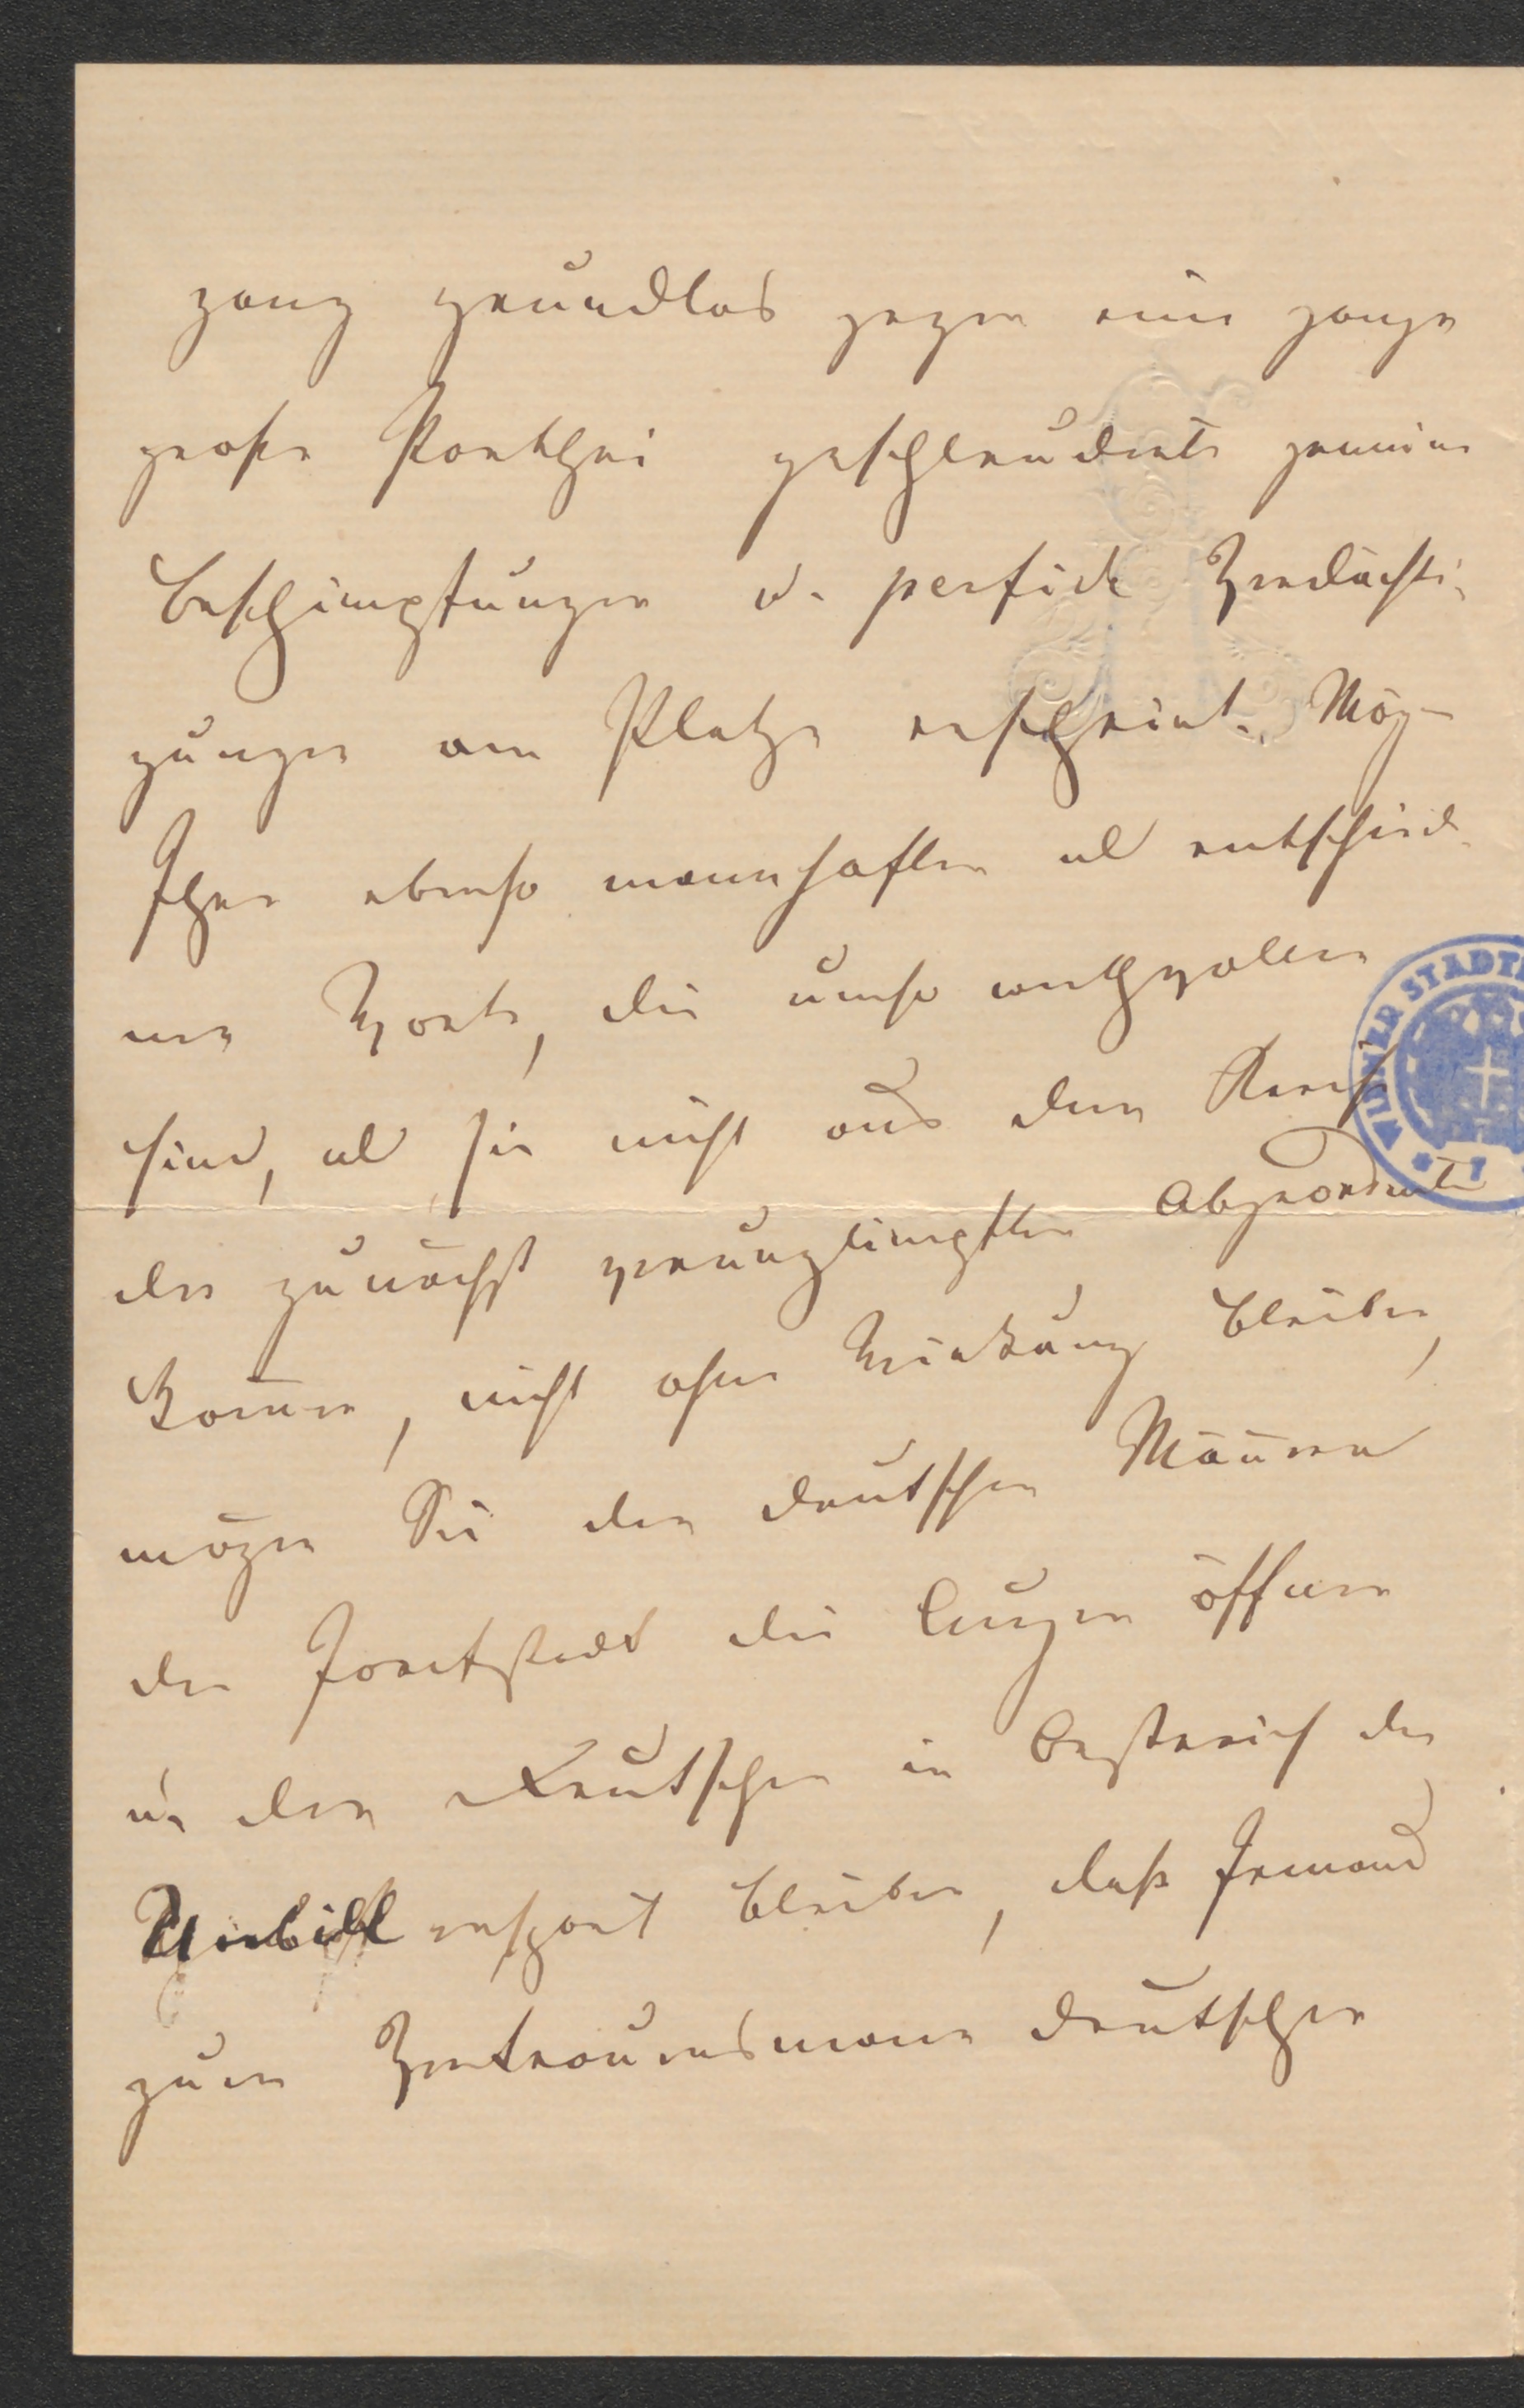 ganz grundlos gegen eine ganze
große Parthei geschleuderte gemeine
Beschimpfungen u. perfide Verdächti-
gungen am Platze erscheint. Mög-
Ihre ebenso mannhaften als entschied-
nen Worte, die umso werthvoller
sind, als sie nicht aus dem Kreise
der zunächst verunglimpften Abgeordnete
kommen, nicht ohne Wirkung bleiben,
mögen Sie den deutschen Männern
der Josefstadt die Augen öffnen
u. den Deutschen in Oestreich die
Unbill erspart bleiben, daß Jemand
zum Vertrauensmann deutscher
WIENER STADT